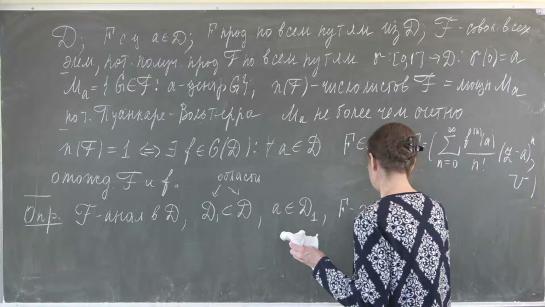 D, F с ц а ∈ D; F прод по всем путям из D, ℱ - совок всех
элем, кот. получ. прод F по всем путям γ: [0,1] → D: γ(0) = a
Mₐ = {G ∈ ℱ: a - центр G}, n(ℱ) - число листов ℱ = мощн Mₐ
по т. Пуанкаре - Вольтерра Mₐ не более чем счетно
n(ℱ) = 1 ⇔ ∃ f ∈ O(D): ∀ a ∈ D F ∈ (∑_{n=0}^{∞} f^{(n)}(a)/n! (z-a)^n, U)
отожд. ℱ и f. области
Опр. ℱ - анал в D, D₁ ⊂ D, a ∈ D₁, F -